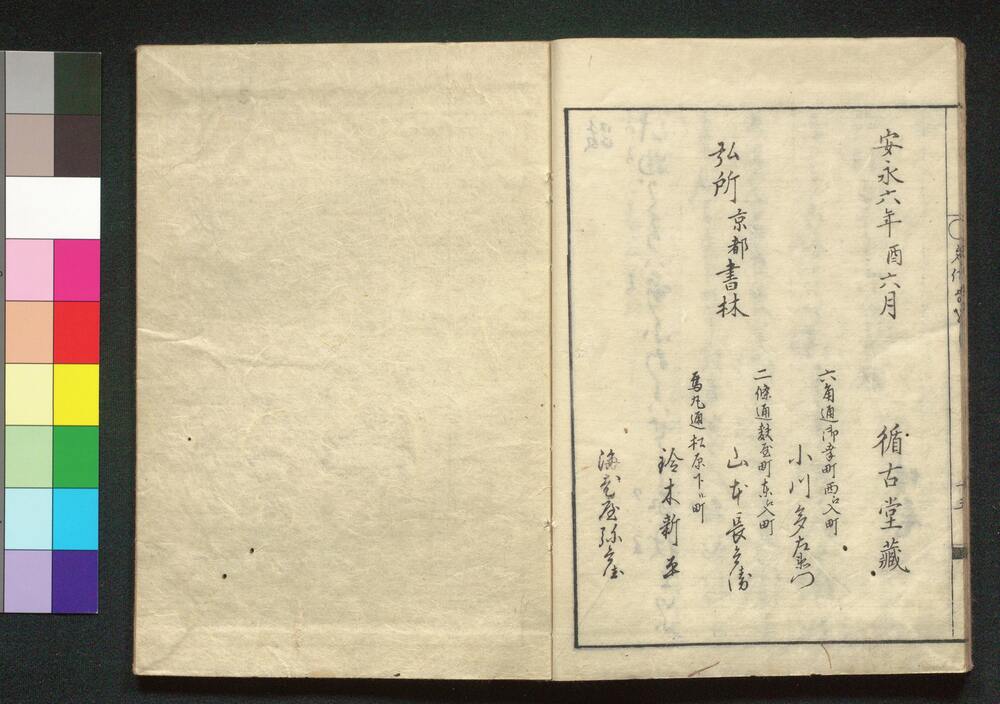 安永六年酉六月
循古堂藏
弘所 京都書林
六角通御幸町西ヘ入町
小川多左衛門
二條通麩屋町東ヘ入町
山本長兵衛
烏丸通松原下ル町
鈴木新平
海老屋弥兵衛